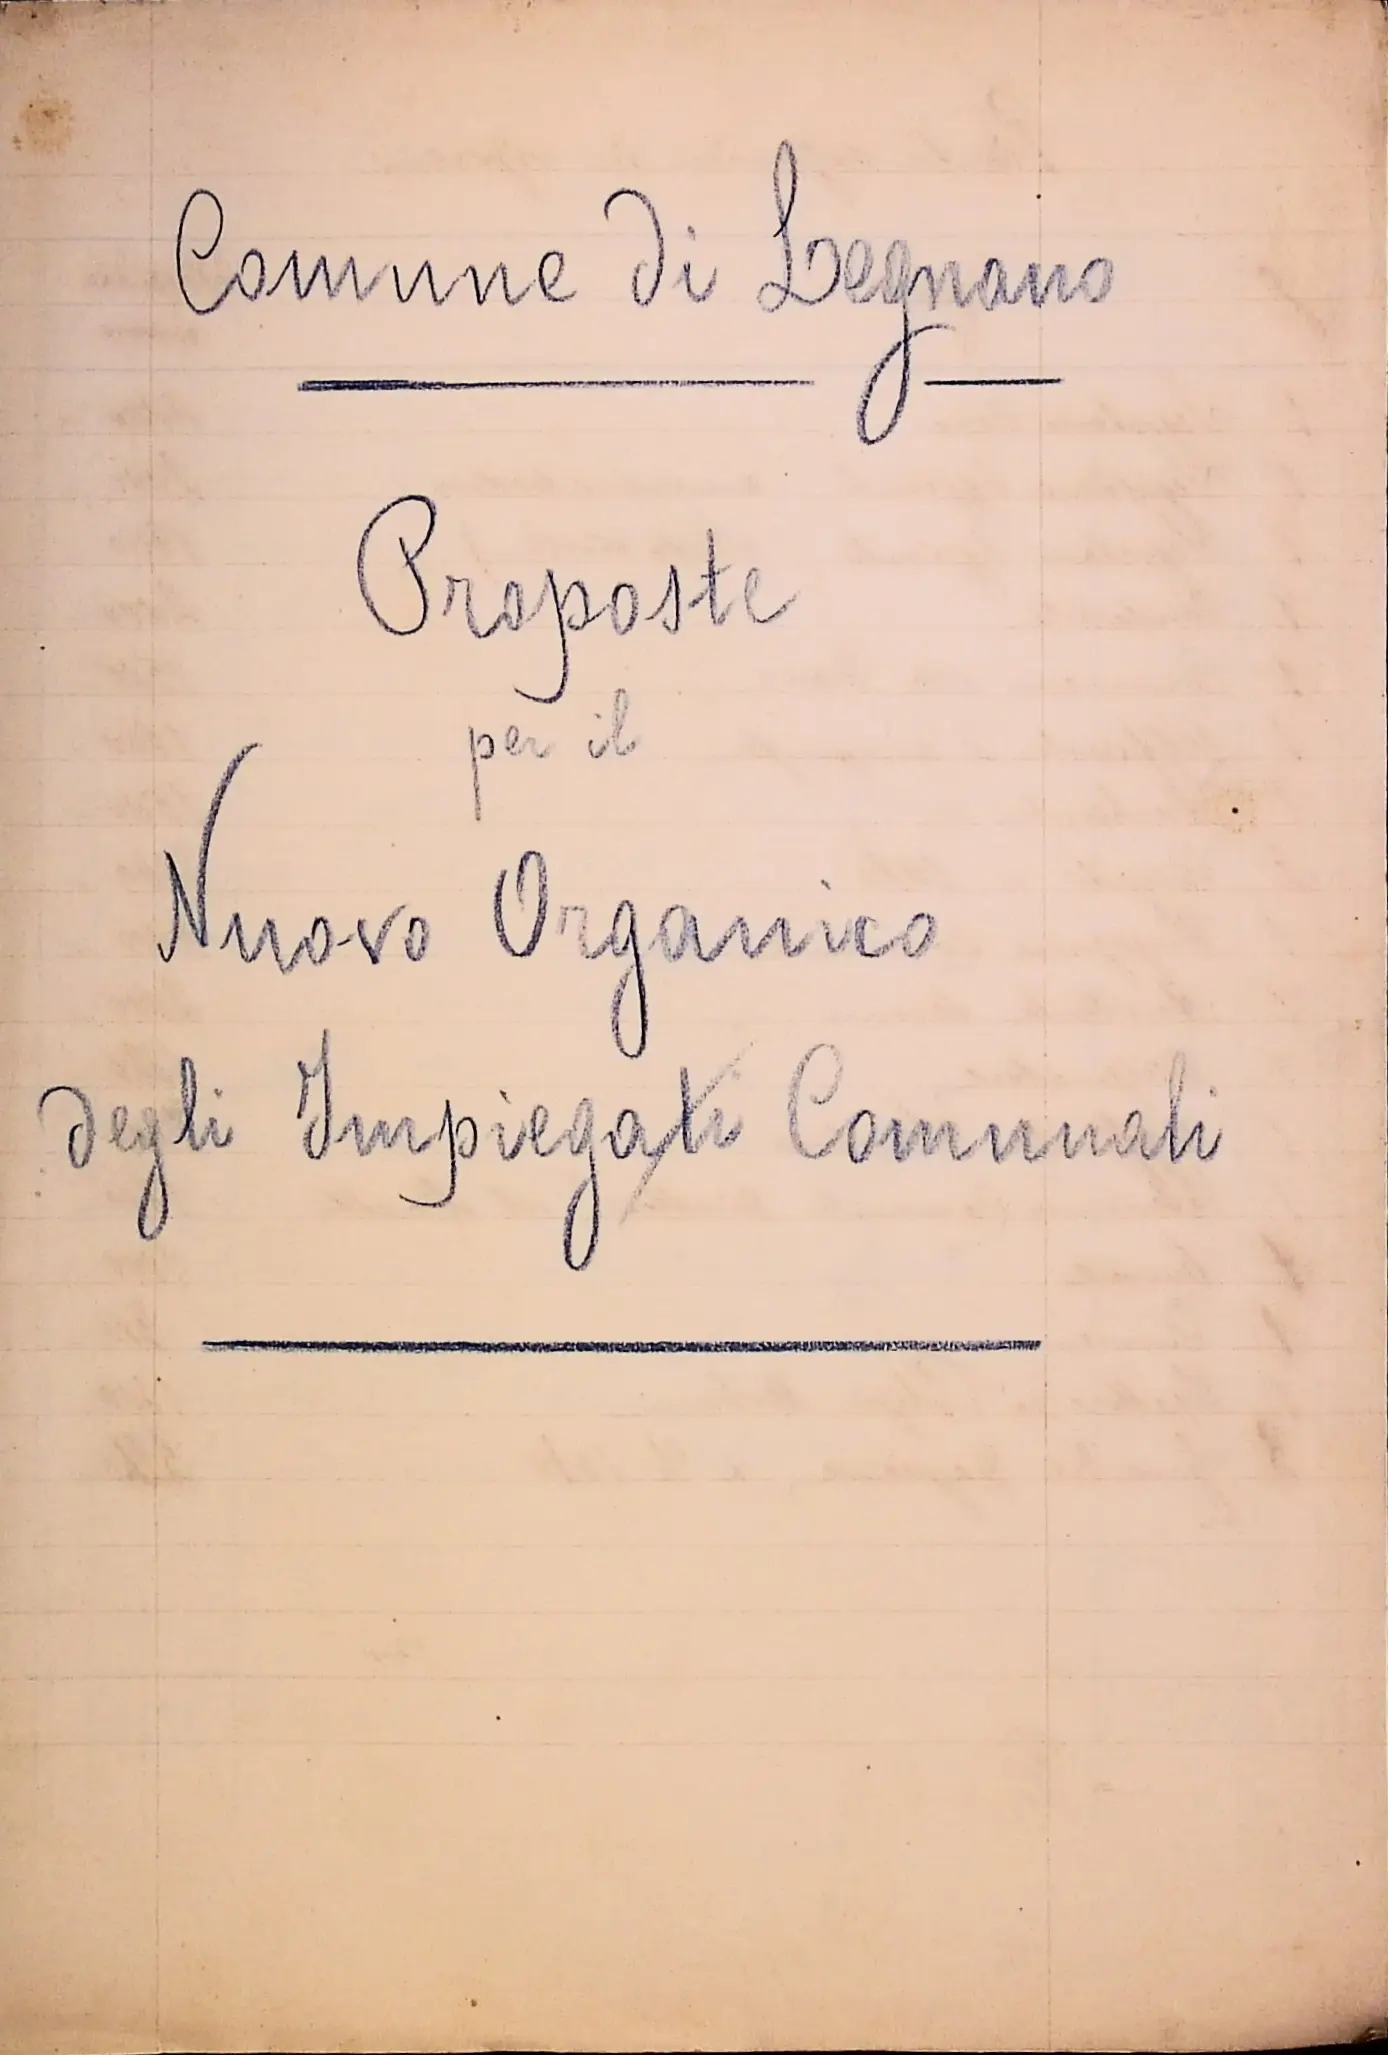 Comune di Legnano
Proposte
per il
Nuovo Organico
degli Impiegati Comunali